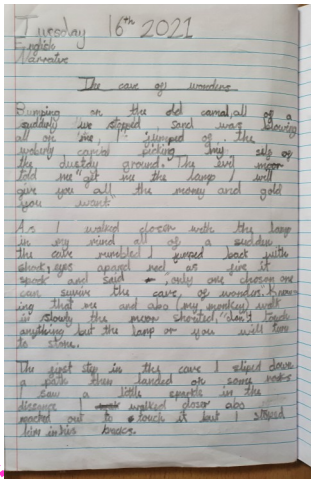 Tuesday 16th 2021
English
Narrative
The cave of wonders
Bumping on the old camal, all of a
suddenly we stopped, sand was blowing
all on me, I jumped of. the
woberly camal picking my self of
the dustay ground. The evil moor
told me "git in the lamp I will
give you all the money and gold
you want"
As I walked closer with the lamp
in my mind all of a sudden
the cave rumbled I jumped back with
shock, eyes apared red as fire it
spook and said only one chosen one
can surive the cave, of wonders. Know
ing that me and abo (my monkey) walk
in slowly the moor shouted, "don't touch
anything but the lamp or you will turn
to stone.
The first step in the cave I sliped down
a path then landed on some rocks
I saw a little sparkle in the
dissance I walked closer abo
reached out to touch it but I stoped
him in his tracks.